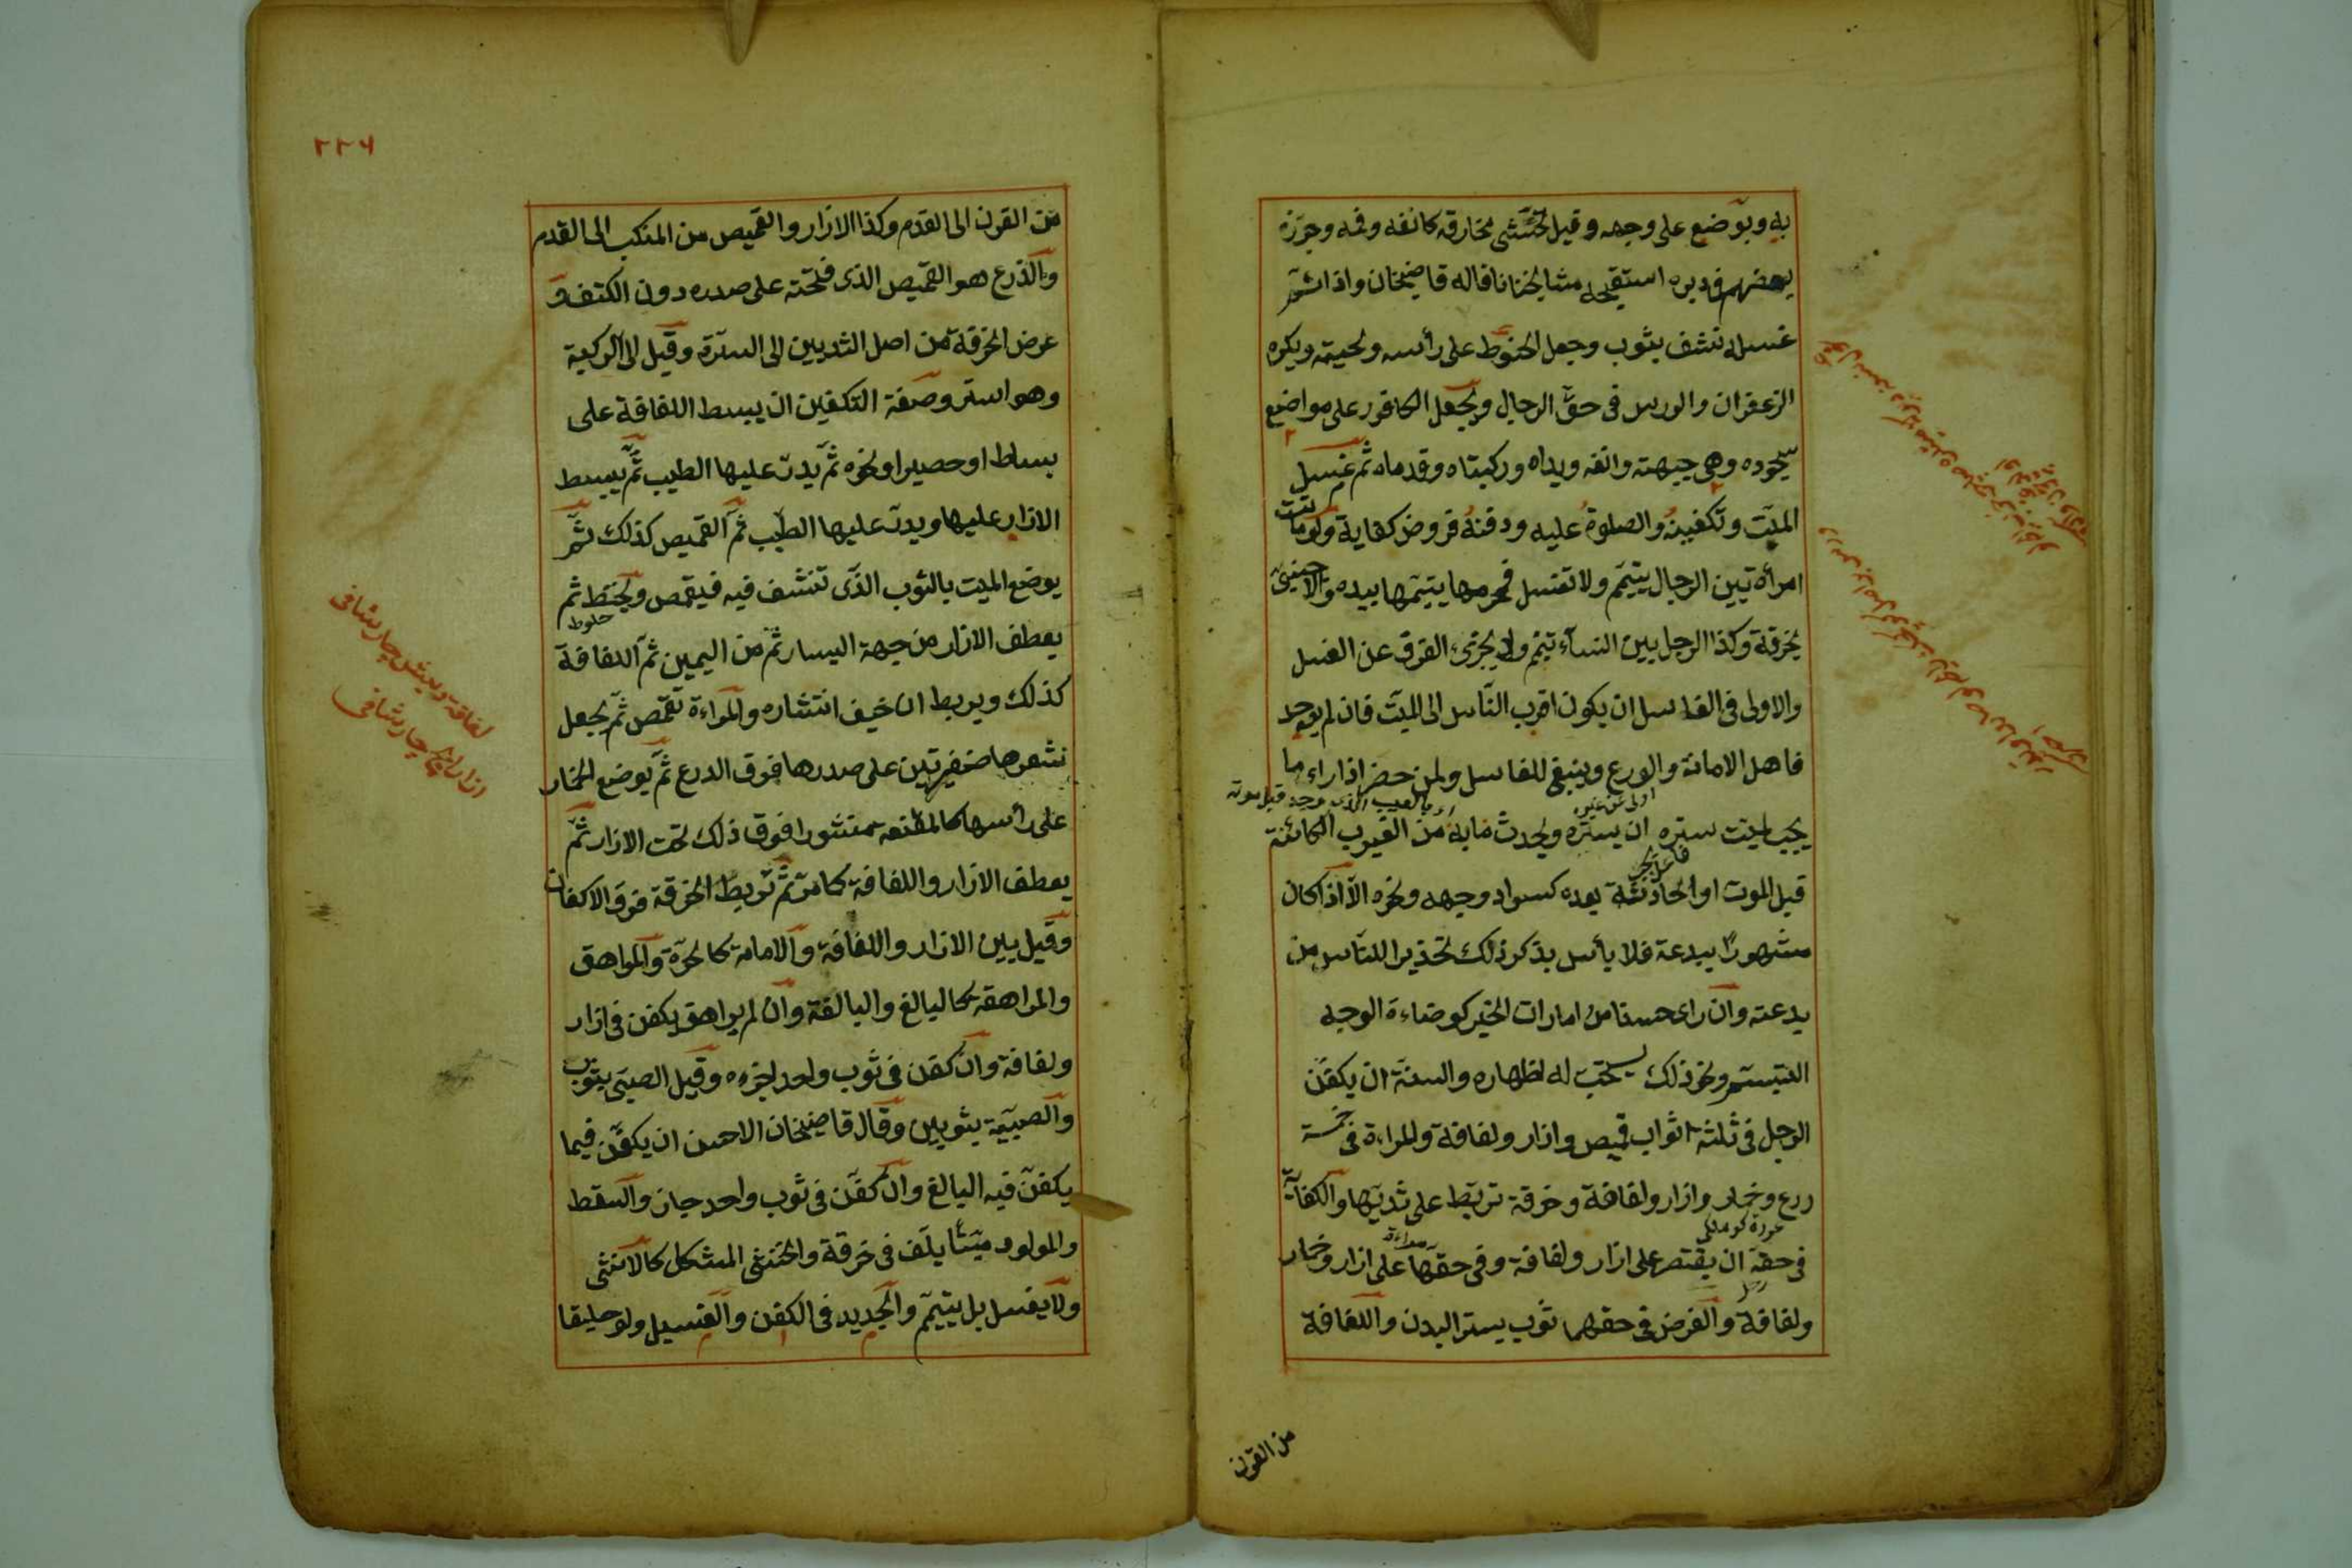 به ويوضع على وجهه وقيل تحشى مخارقه كانفه وفمه وجوزه
بعضهم فى دبره استقبحه مشايخنا قاله قاضيخان واذا تم
غسله تنشف بثوب وجعل الحنوط على رأسه ولحيته ويكره
الزعفران والورس فى حق الرجال ويجعل الكافور على مواضع
سجوده وهى جبهته وانفه ويداه وركبتاه وقدماه ثم غسل
الميت وتكفينه والصلوة عليه ودفنه فروض كفاية ولو ماتت
امرأة بين الرجال يتيمم ولا تغسل فمحرمها يتيمها بيده والاجنبى
بخرقة وكذا الرجل بين النساء تيمم ولا يجزئ الغرق عن الغسل
والاولى فى الغاسل ان يكون اقرب الناس الى الميت فان لم يوجد
فاهل الامانة والورع وينبغى للغاسل ولمن حضر اذا راء ما
يجب لميت ستره ان يستره ولا يحدث مابه من العيوب الكائنة
اولى من غيره
بالعيب الذى وجد قبل موته
قبل الموت او الحادثة بعده كسواد وجهه ونحوه الا اذا كان
مشهورا ببدعة فلا بأس بذكر ذلك تحذيرا للناس من
بدعته وان راى حسنا من امارات الخير كوضاءة الوجه
التبسم ونحو ذلك يستحب له اظهاره والسنة ان يكفن
الرجل فى ثلثة اثواب قميص وازار ولفافة والمراءة فى خمسة
درع وخمار وازار ولفافة وخرقة تربط على ثدييها والكفاية
فى حقه ان يقتصر على ازار ولفافة وفى حقها على ازار وخمار
ولفافة والفرض فى حقهما ثوب يستر البدن واللفافة
من القرن
٢٢٦
من القرن الى القدم وكذا الازار والقميص من المنكب الى القدم
والدرع هو القميص الذى فتحته على صدره دون الكتف و
عرض الخرقة من اصل الثديين الى السترة وقيل الى الركبة
وهو استر وصفة التكفين ان يبسط اللفافة على
بساط او حصير او نحوه ثم يدر عليها الطيب ثم يبسط
الازار عليها ويدر عليها الطيب ثم القميص كذلك ثم
يوضع الميت بالثوب الذى تنشف فيه فيقمص ويحنط ثم
حلوط
يعطف الازار من جهة اليسار ثم من اليمين ثم اللفافة
كذلك ويربط ان خيف انتشاره والمراءة تقمص ثم يجعل
شعرها ضفيرتين على صدرها فوق الدرع ثم يوضع الخمار
على رأسها كالمقنعة منشورا فوق ذلك تحت الازار ثم
يعطف الازار واللفافة كما مر ثم تربط الخرقة فوق الاكفان
وقيل بين الازار واللفافة والامامة كالحرة والمراهق
والمراهقة كالبالغ والبالغة وان لم يراهق يكفن فى ازار
ولفافة وان كفن فى ثوب واحد اجزءه وقيل الصبى بثوب
والصبية بثوبين وقال قاضيخان الاحسن ان يكفن فيما
يكفن فيه البالغ وان كفن فى ثوب واحد جاز والسقط
والمولود ميتا يلف فى خرقة والخنثى المشكل كالانثى
ولا يغسل بل يتيمم والجديد فى الكفن والغسيل ولو خليقا